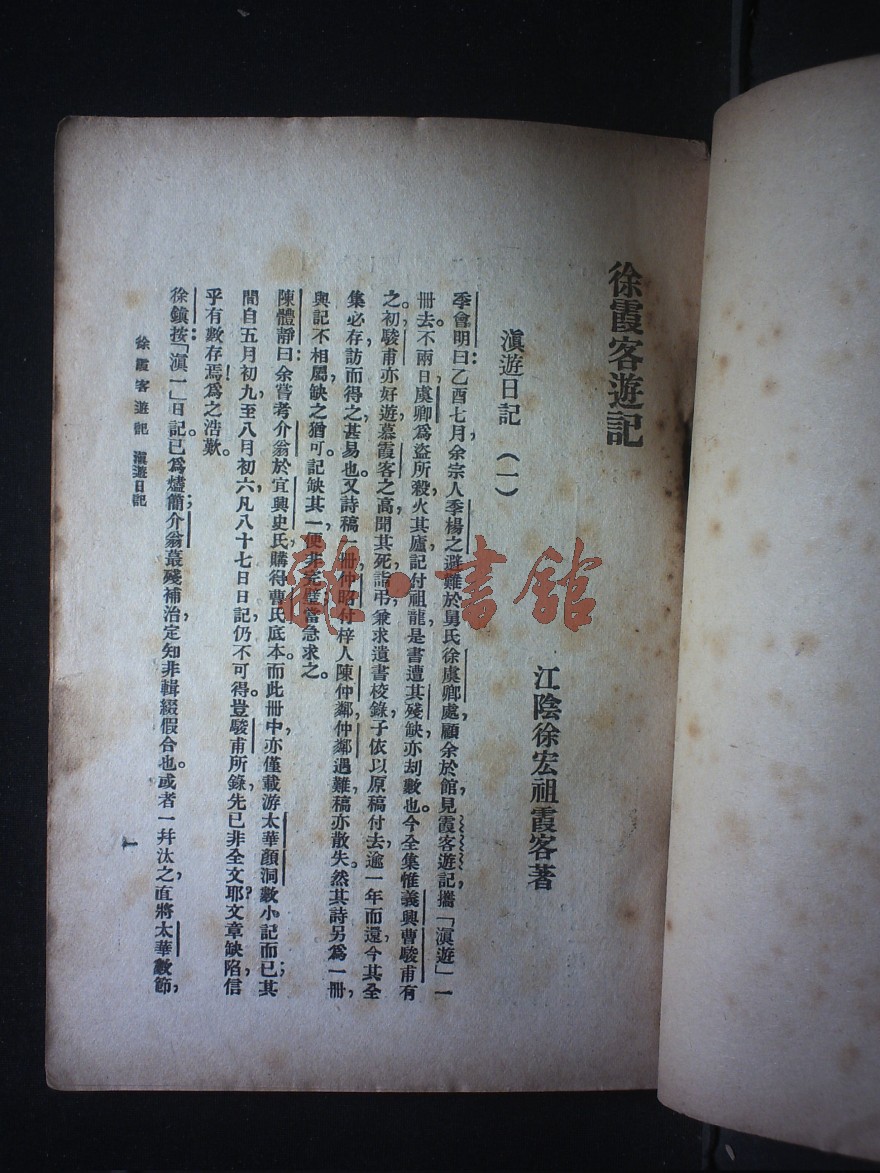 徐霞客遊記
江陰徐宏祖霞客著
滇遊日記（一）
季會明曰：乙酉七月，余宗人季楊之避難於舅氏徐虞卿處，顧余於館，見霞客遊記，攜「滇遊」一
冊去。不兩日，虞卿爲盜所殺，火其廬，記付祖龍。是書遭其殘缺，亦刦數也。今全集惟義興曹駿甫有
之。初，駿甫亦好遊，慕霞客之高，聞其死，詣弔，兼求遺書校錄，子依以原稿付去，逾一年而還。今其全
集必存，訪而得之甚易也。又詩稿一冊，仲昭付梓人陳仲鄰，仲鄰遇難，稿亦散失。然其詩另爲一冊，
與記不相屬，缺之猶可。記缺其一，便非完璧，當急求之。
陳體靜曰：余嘗考介翁於宜興史氏購得曹氏底本。而此冊中，亦僅載游太華、顏洞數小記而已；其
間自五月初九至八月初六，凡八十七日日記，仍不可得。豈駿甫所錄，先已非全文耶？文章缺陷，信
乎有數存焉！爲之浩歎。
徐鎮按：「滇一」日記，已爲燼簡；介翁蒐殘補治，定知非輯綴假合也。或者一幷汰之，直將太華數節，
徐霞客遊記　滇遊日記
一
龍·書館